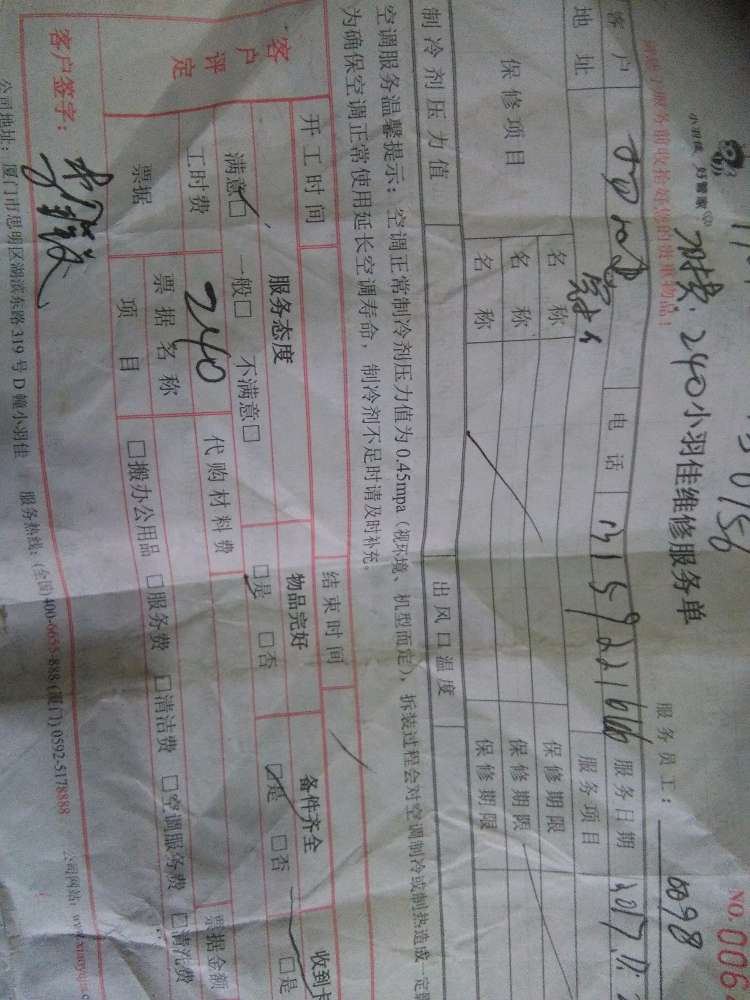 小羽佳 好管家
NO.006
小羽佳维修服务单
240
服务员工：
0098
客户
电话
服务日期
2017.
地址
服务项目
保修项目
名称
保修期限
名称
保修期限
名称
保修期限
制冷剂压力值
出风口温度
空调服务温馨提示：空调正常制冷剂压力值为0.45mpa（视环境、机型而定），拆装过程会对空调制冷或制热造成一定
为确保空调正常使用延长空调寿命，制冷剂不足时请及时补充。
开工时间
结束时间
客户评定
服务态度
物品完好
备件齐全
收到卡
满意□ 一般□ 不满意□
□是 □否
□是 □否
□是
工时费
240
代购材料费
票据
票据名称
票据金额
项目
□搬办公用品 □服务费 □清洁费 □空调服务费 □清洗费
客户签字：
公司地址：厦门市思明区湖滨东路319号D幢小羽佳 服务热线：(全国)400-6655-888 (厦门)0592-5178888 公司网站：